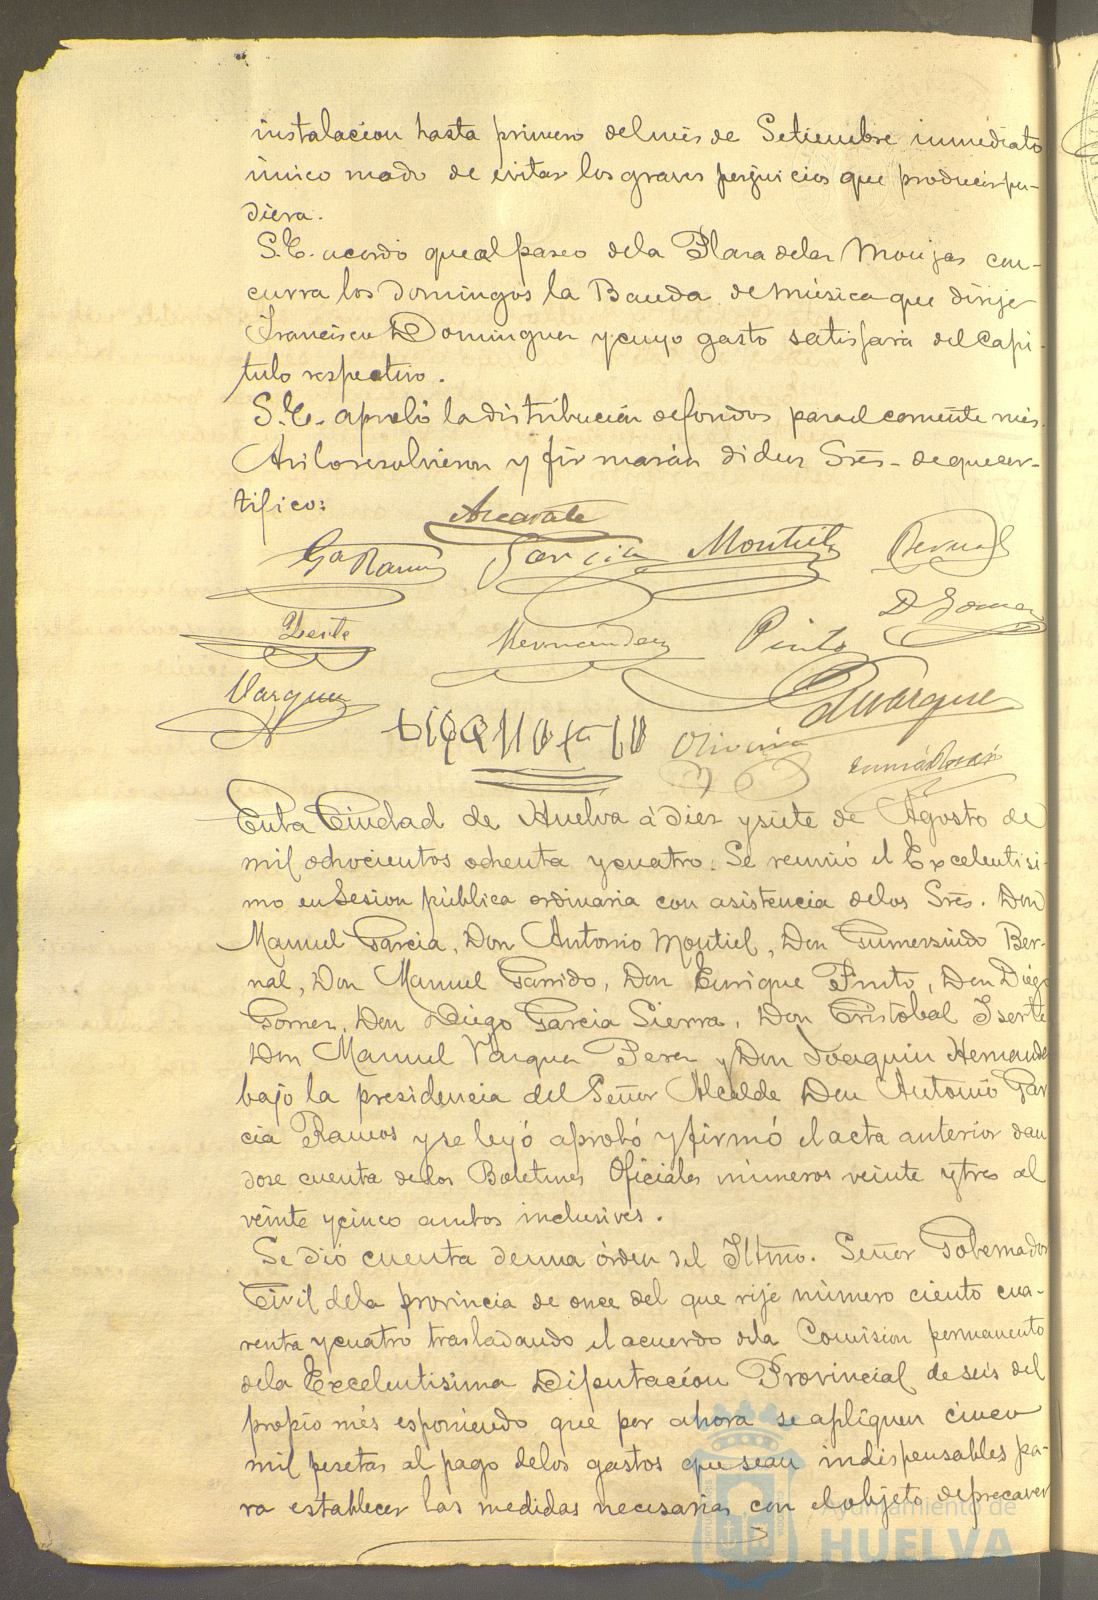 instalacion hasta primero del més de Setiembre inmediato
único modo de evitar los graves perjuicios que producir pu-
diera.
S.E. acordó que al paseo de la Plaza de las Monjas con-
curra los Domingos la Banda de música que dirije
Francisco Dominguez y cuyo gasto satisfará del Capi-
tulo respectivo.
S.E. aprobó la distribución de fondos para el corriente més.
Asi lo resolvieron y firmarán dichos Sres. de que cer-
tifico:
Azcarate
Ga Ramos García Montiel Bernal
D Gomez
Iserte Hernandez Pinto
Vazquez
Oliveira
En la Ciudad de Huelva á diez y siete de Agosto de
mil ochocientos ochenta y cuatro. Se reunió el Excelentisi-
mo en Sesion pública ordinaria con asistencia de los Sres. Don
Manuel Garcia, Don Antonio Montiel, Don Gumersindo Ber-
nal, Don Manuel Garrido, Don Enrique Pinto, Don Diego
Gomez, Don Diego Garcia Sierra, Don Cristóbal Iserte
Don Manuel Vazquez Perez y Don Joaquin Hernandez
bajo la presidencia del Señor Alcalde Don Antonio Gar
cia Ramos y se leyó aprobó y firmó el acta anterior dan
dose cuenta de los Boletines Oficiales números veinte y tres al
veinte y cinco ambos inclusives.
Se dió cuenta de una órden del Iltmo. Señor Gobernador
Civil de la provincia de once del que rije número ciento cua-
renta y cuatro trasladando el acuerdo de la Comision permanente
de la Excelentisima Diputación Provincial de seis del
propio més esponiendo que por ahora se apliquen cinco
mil pesetas al pago de los gastos que sean indispensables pa-
ra establecer las medidas necesarias con el objeto de precaver
Ayuntamiento de
HUELVA